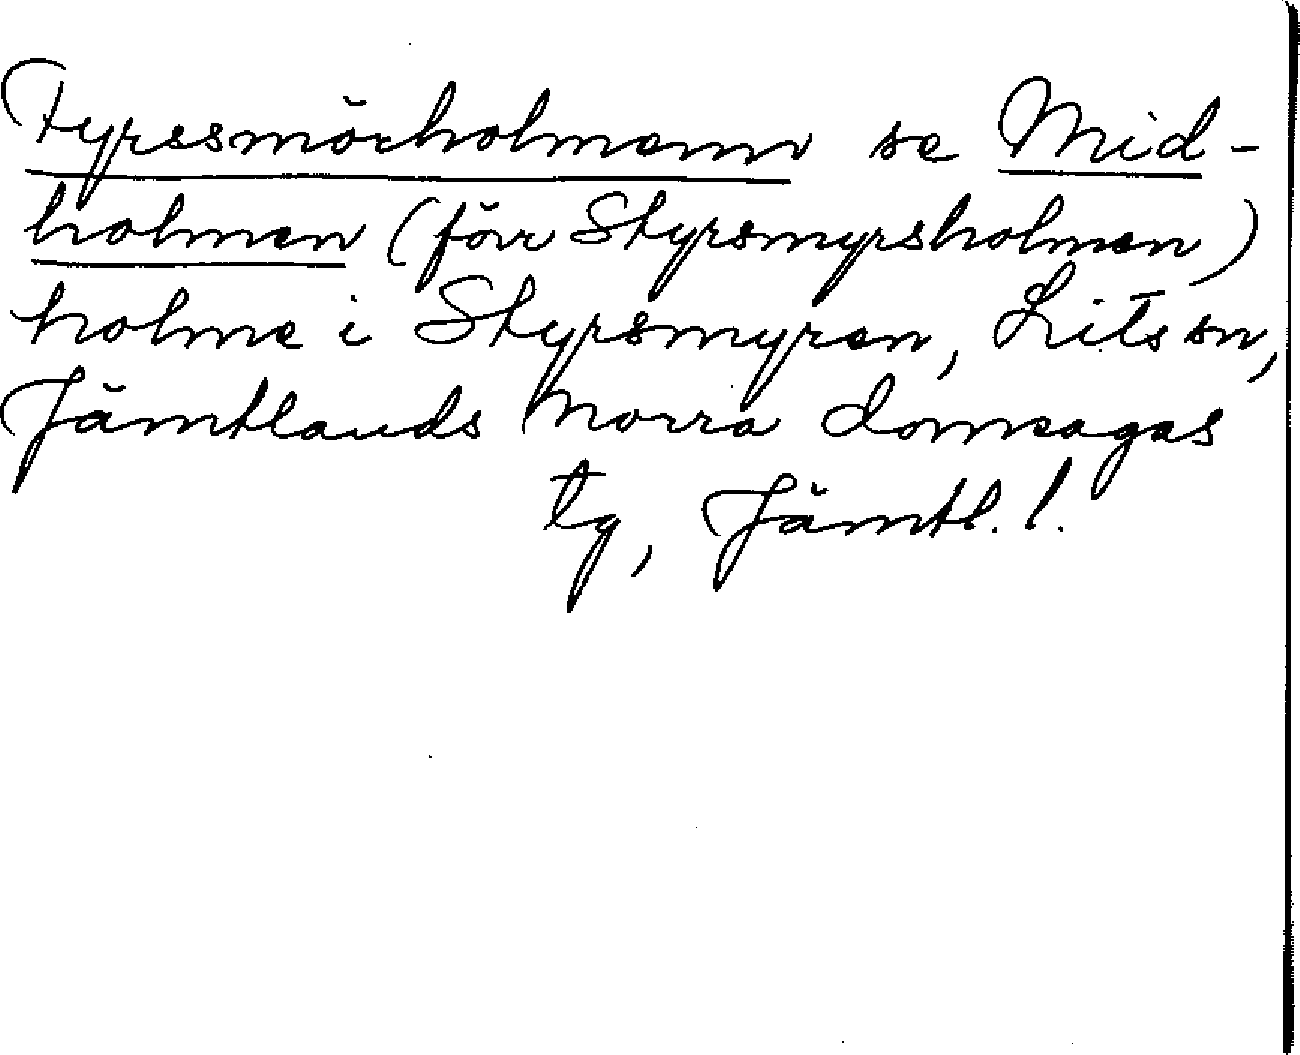 Tyrssmörholmenn se Mid-
holmen (förr Styrsmyrsholmen)
holme i Styrsmyren, Lits sn,
Jämtlands norra domsagas
tg, Jämtl. l.